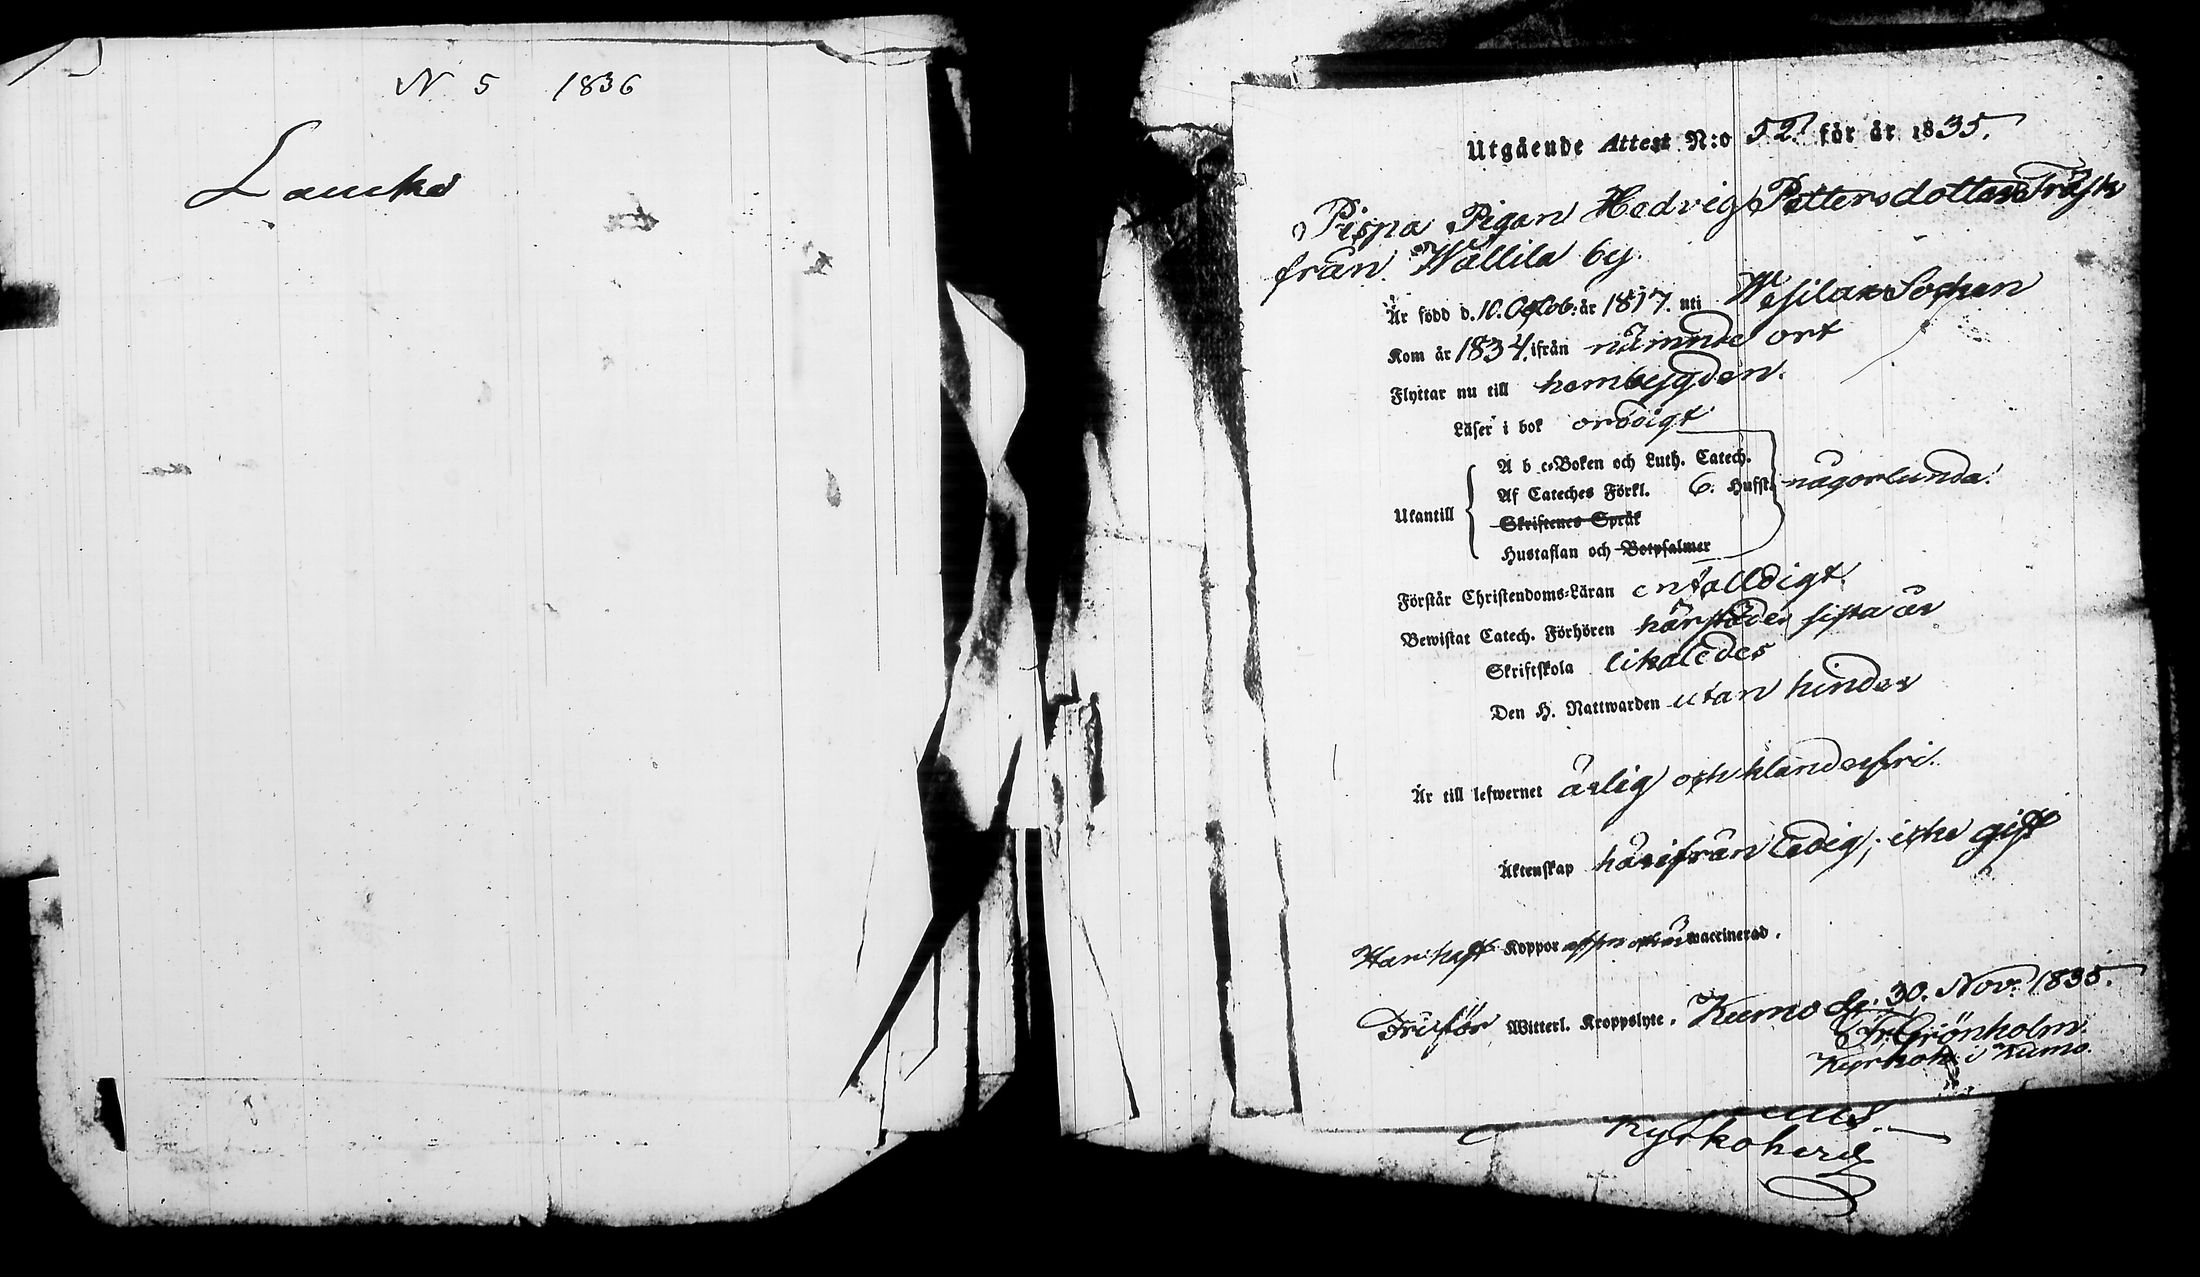 N 5 1836
Lauha
Utgående Attest N:o 52. för år 1835.
Pispa Pigan Hedvig Pettersdotter Träsk
från Wallila by.
Är född d. 10. Octob. år 1817. uti Wesilax Sochen
Kom år 1834. ifrån nämnde ort
Flyttar nu till hembygden.
Läser i bok orddigt
A b c-Boken och Luth. Catech.
Af Cateches Förkl. 6. Hufst. någorlunda.
Utantill
Skriftenes Språk
Hustaflan och Botpsalmer
Förstår Christendoms-Läran enfalldigt.
Bewistat Catech. Förhören härstädes sista år
Skriftskola likaledes
Den H. Nattwarden utan hinder
Är till lefwernet ärlig och klanderfri.
Äktenskap härifrån ledig; icke gift
Har haft Koppor waccinerad.
Fri för Witterl. Kroppslyte. Kumo d. 30. Nov. 1835.
Fr. Grönholm.
Kyrkoh. i Kumo.
Kyrkoherde